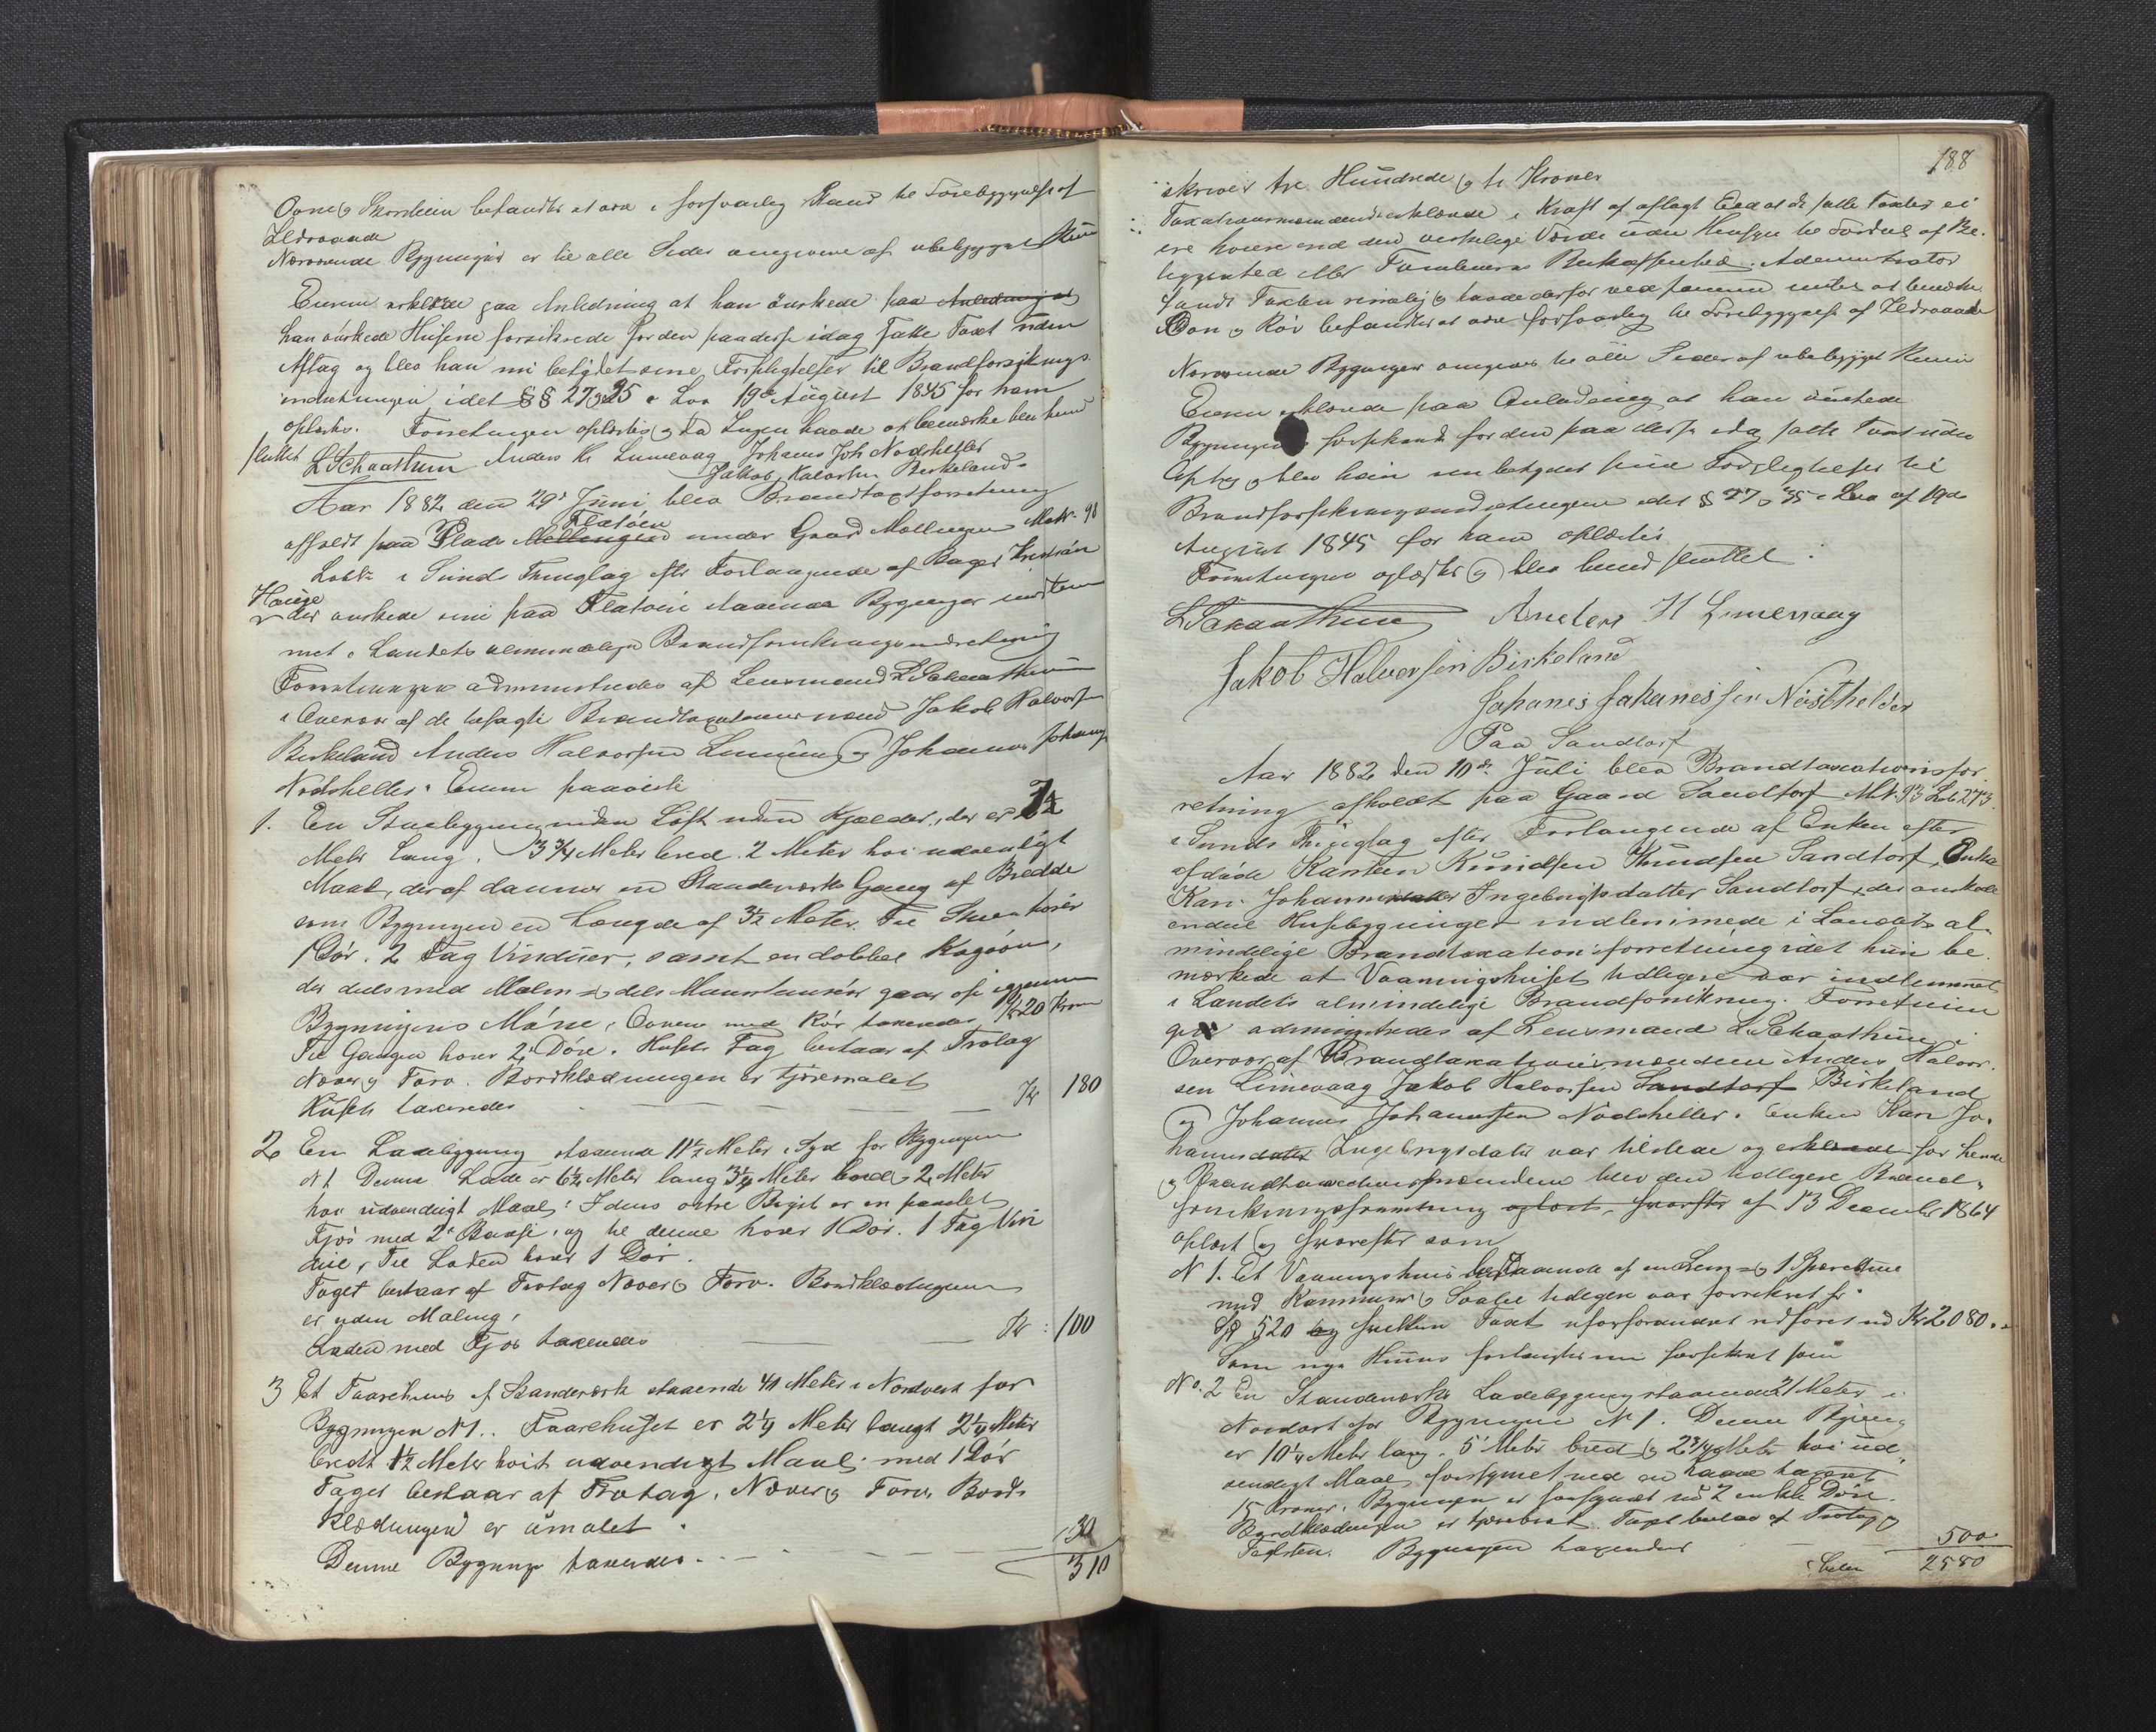 Ovne og Skorsteen befandtes at være i forsvarlig Stand til Forebyggelse af
Ildvaade
Nærværende Bygninger er til alle Sider omgivne af ubebygget Rum
Eieren erklærede paa Anledning at han önskede paa Anledning at
han önskede Husene forsikrede for den paa dem idag satte Taxt uden
Aftag og blev han nu betydet sine Forpligtelser til Brandforsikrings
indretningen idet §§ 27 og 35 i Lov 19de August 1845 for ham
oplæstes. Forretningen oplæstes og da Ingen havde at bemærke blev hermed
sluttet
L Schaathun Anders H. Limevaag Johanes Joh Nodsheller
Jakob Halvorsen Berkeland
Aar 1882 den 29de Juni blev Brandtaxtforretning
Flatöen
afholdt paa Plads Mollingen under Gaard Mollingen Matr. 98
Löbn i Sunds Thinglag efter Forlangende af Bager Kristian
Hauge
der önskede sine paa Flatöen staaende Bygninger indtem
met i Landets almindelige Brandforsikringsindretning
Forretningen administredes af Lensmand L Schaathun
i Overvær af de lovfaste Brandtaxationsmænd Jakob Halvorsen
Birkeland Anders Halvorsen Limevaag og Johannes Johannes
Nodsheller. Eieren paaviste
1. En Stuebygning uden Loft uden Kjælder, der er 7½
Meter lang, 3¾ Meter bred 2 Meter höi udvendigt
Maal, deraf danner en Standværks Gang af Bredde
som Bygningen en Længde af 3½ Meter. Til Stuen hörer
1 Dör. 2 Fag Vinduer, samt en dobbel Kogeovn,
der dels med Malm og dels Muursteensrör gaar op igjennem
Bygningens Mönne. Ovnen med Rör taxeredes Kr 20 Kroner
Til Gangen hörer 2 Döre. Husets Tag bestaar af Trotag
Næver og Torv. Bordklædningen er tjæremalet
Huset taxeredes Kr 180
2 En Ladebygning staaende 11½ Meter i Syd for Bygningen
N 1 Denne Lade er 6½ Meter lang 3¼ Meter bred og 2 Meter
höi udvendigt Maal. I dens östre er en panelet
Fjös med 2 Baase, og til denne hörer 1 Dör. 1 Fag Vin
due, Til Laden hörer 1 Dör.
Taget bestaar af Trotag Næver og Torv. Bordklædningen
er uden Maling.
Laden med Fjös taxeredes Kr: 100
3 Et Faarehuus af Standværk staaende 41 Meter i Nordvest for
Bygningen N 1.. Faarehuset er 2¼ Meter langt 2¼ Meter
bredt 1½ Meter höit udvendigt Maal med 1 Dör
Taget bestaar af Trotag, Næver og Torv. Bord
klædningen er umalet.
Denne Bygning taxeredes 30
310
188
skriver tre Hundrede og ti Kroner
Taxationsmændene erklærede i Kraft af aflagt Eed at de satte Taxter ei
ere höiere end den virkelige Værdi uden Hensyn til Fordeel af Be.
liggenhed eller Tomternes Beskaffenhed. Administrator
fandt Taxten rimelig og havde derfor ved samme intet at bemærke
Ovn og Rör befandtes at være forsvarlig til Forebyggelse af Ildvaade
Nærværende Bygninger omgives til alle Sider af ubebygget Rum
Eieren erklærede paa Anledning at han önskede
Bygningen forsikrede for den paa dem idag satte Taxt uden
Aftag og blev han nu betydet sine Forpligtelser til
Brandforsikringsindretningen idet § 27 og 35 i Lov af 19de
August 1845 for ham oplæstes
Forretningen oplæstes og blev hermed sluttet
L Schaathun Anders H Limevaag
Jakob Halversen Birkeland
Johanes Johanessen Nösthelder
Paa Sandtorf
Aar 1882 den 10de Juli blev Brandtaxationsfor
retning afholdt paa Gaard Sandtorf M.N. 93 Lob 273.
i Sunds Thinglag efter Forlangende af Enken efter
afdöde Karsten Knudsen Sandtorf, Enke
Kari Johannesdatter Ingebrigtsdatter Sandtorf, der önskede
endeel Husebygninger indlemmede i Landets al
mindelige Brandtaxationsforretning idet hun be
mærkede at Vaaningshuset tidligere var indlemmet
i Landets almindelige Brandforsikring. Forretnin
gen administredes af Lensmand L Schaathun i
Overvær af Brandtaxationsmændene Anders Halvor
sen Limevaag Jakob Halvorsen Sandtorf Birkeland
og Johannes Johannessen Nodsheller. Enken Kari Jo.
hannesdatter Ingebrigsdatter var tilstede og erklærede for hende
og Brandtaxationsmændene blev den tidligere Brand
forsikringsforretning oplæst, hvorefter af 13 December 1864
oplæst og hvorefter som
N 1. Et Vaaningshuus bestaaende af en Leng og 1 Spærestue
med Kammer og Svale tidligere var forsikret for
Sp 520 og hvilken Taxt uforandret udföres med Kr 2080.
Som nye Huuse forlangtes nu forsikret som
No. 2 En Standværks Ladebygning staaende 21 Meter i
Nordost for Bygningen N 1. Denne Bygning
er 10¼ Meter lang. 5 Meter bred og 2¾ Meter höi ud
vendigt Maal forsynet med en taxeret
15 Kroner. Bygningen er forsynet med 2 enkle Döre.
Bordklædningen er tjærebred. Taget bestaar af Trotag og
Tagsten. Bygningen taxeredes 500
2580